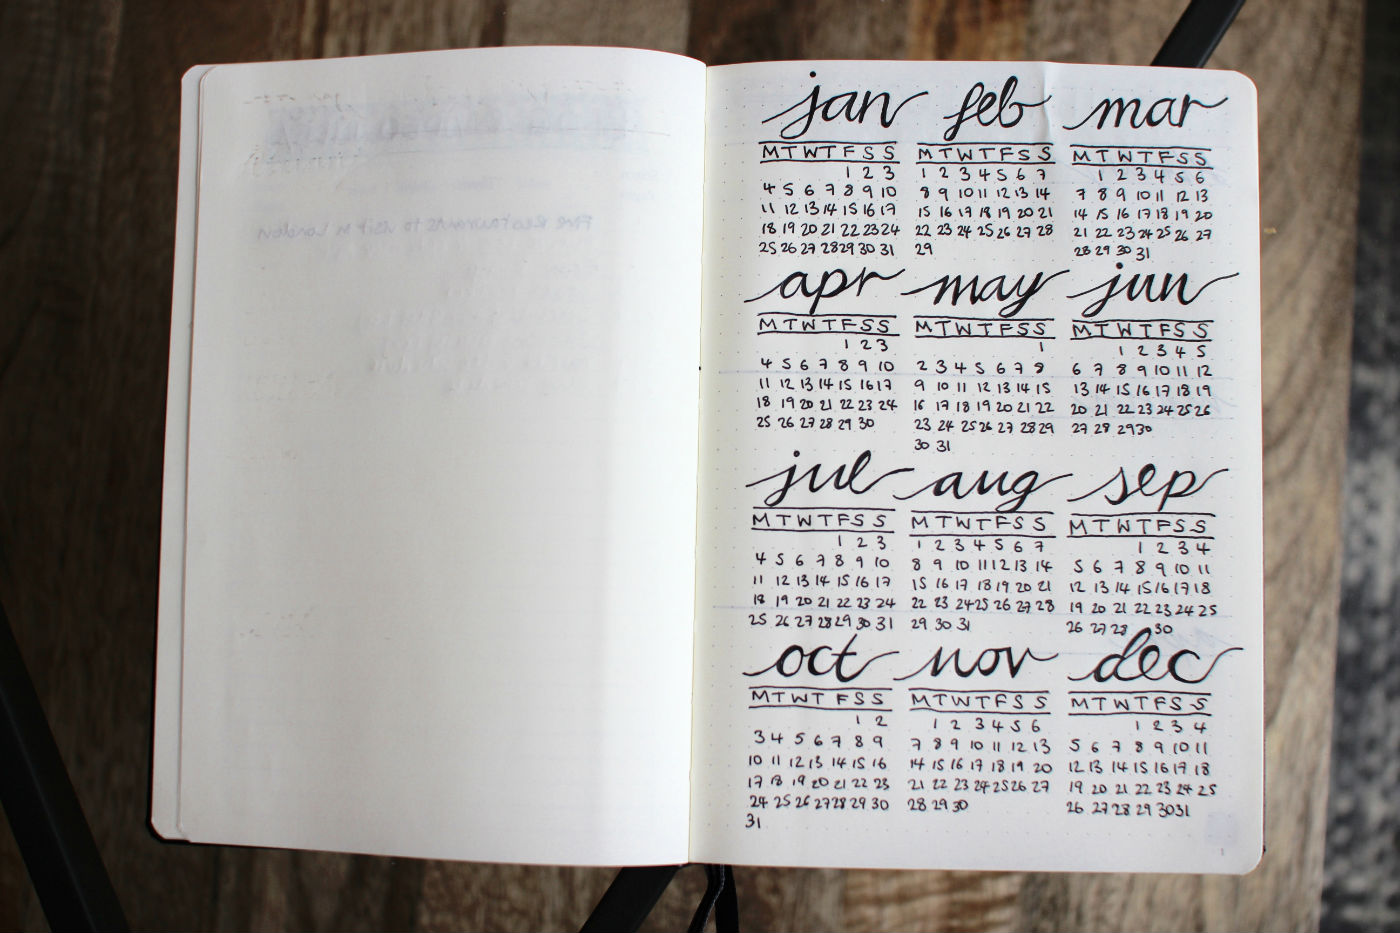 jan feb mar
M T W T F S S M T W T F S S M T W T F S S
1 2 3 1 2 3 4 5 6 7 1 2 3 4 5 6
4 5 6 7 8 9 10 8 9 10 11 12 13 14 7 8 9 10 11 12 13
11 12 13 14 15 16 17 15 16 17 18 19 20 21 14 15 16 17 18 19 20
18 19 20 21 22 23 24 22 23 24 25 26 27 28 21 22 23 24 25 26 27
25 26 27 28 29 30 31 29 28 29 30 31
apr may jun
M T W T F S S M T W T F S S M T W T F S S
1 2 3 1 1 2 3 4 5
4 5 6 7 8 9 10 2 3 4 5 6 7 8 6 7 8 9 10 11 12
11 12 13 14 15 16 17 9 10 11 12 13 14 15 13 14 15 16 17 18 19
18 19 20 21 22 23 24 16 17 18 19 20 21 22 20 21 22 23 24 25 26
25 26 27 28 29 30 23 24 25 26 27 28 29 27 28 29 30
30 31
jul aug sep
M T W T F S S M T W T F S S M T W T F S S
1 2 3 1 2 3 4 5 6 7 1 2 3 4
4 5 6 7 8 9 10 8 9 10 11 12 13 14 5 6 7 8 9 10 11
11 12 13 14 15 16 17 15 16 17 18 19 20 21 12 13 14 15 16 17 18
18 19 20 21 22 23 24 22 23 24 25 26 27 28 19 20 21 22 23 24 25
25 26 27 28 29 30 31 29 30 31 26 27 28 30
oct nov dec
M T W T F S S M T W T F S S M T W T F S S
1 2 1 2 3 4 5 6 1 2 3 4
3 4 5 6 7 8 9 7 8 9 10 11 12 13 5 6 7 8 9 10 11
10 11 12 13 14 15 16 14 15 16 17 18 19 20 12 13 14 15 16 17 18
17 18 19 20 21 22 23 21 22 23 24 25 26 27 19 20 21 22 23 24 25
24 25 26 27 28 29 30 28 29 30 26 27 28 29 30 31
31
1